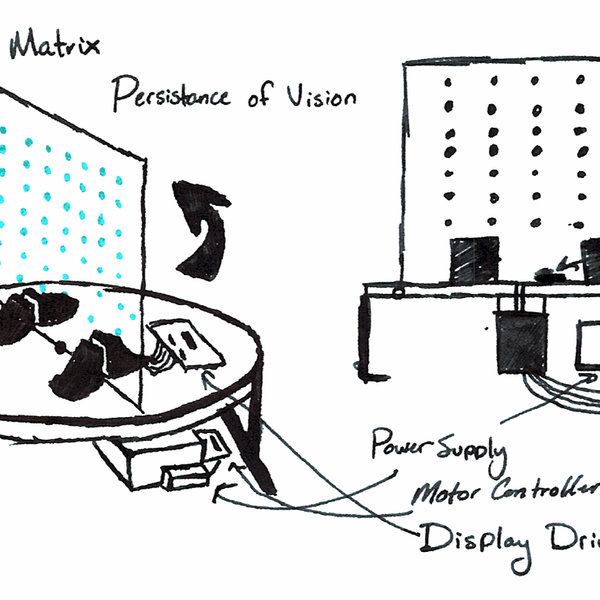 Matrix
Persistance of Vision
Power Supply
Motor Controller
Display Dri